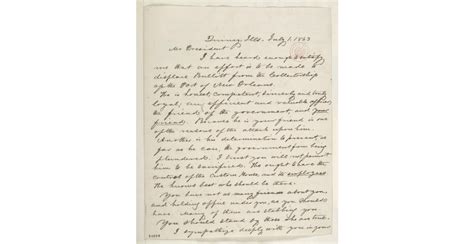 Quincy, Ills. July 1, 1863
Mr President
I have heard enough to satisfy
me that an effort is to be made to
displace Bullitt from the Collectorship
of the Port of New Orleans.
He is honest, competent, sincerely and truly
loyal; an efficient and valuable officer,
the friend of the government, and your
friend. Because he is your friend is one
of the reasons of the attack upon him.
Another is his determination to prevent, as
far as he can, the government from being
plundered. I trust you will not permit
him to be sacrificed. He ought to have the
control of the Custom House, and its employees.
He knows best who should be there.
You have not as many friends about you,
and holding office under you, as you should
have. Many of them are stabbing you.
You should stand by those who are true.
I sympathize deeply with you in your